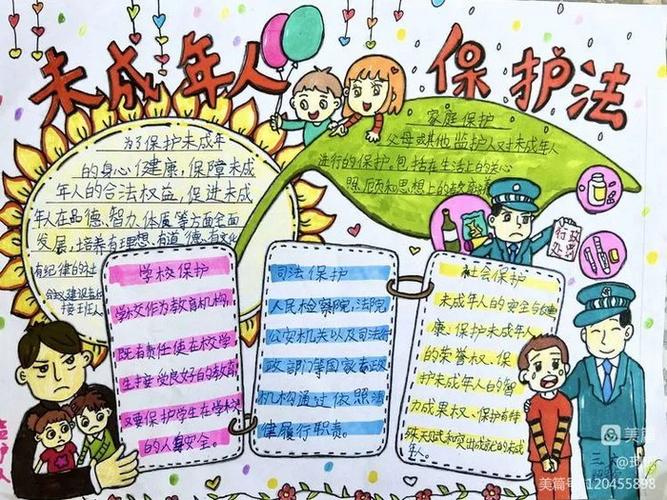 未成年人保护法
为了保护未成年
的身心健康,保障未成
年人的合法权益,促进未成
年人在品德、智力、体质等方面全面
发展,培养有理想、有道德、有文化
有纪律的社
接班人
家庭保护
父母或其他监护人对未成年人
进行的保护,包括在生活上的关心
照
和思想上的教育
学校保护
学校作为教育机构,
既有责任使在校学
生接受良好的教育
又要保护学生在学校
的人身安全。
司法保护
人民检察院,法院
公安机关以及司法
政部门等国家
机构通过依照法
律履行职责。
社会保护
未成年人的安全与健
康、保护未成年人
的荣誉权、保
护未成年人的智
力成果权、保护有特
殊天赋和突出成就的未成
年人。
行政
处罚
监护人
美篇
美篇号:120455898